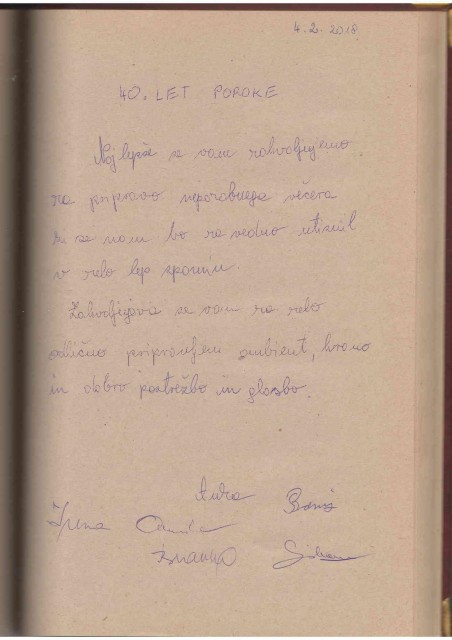 4.2.2018
40. LET POROKE
Najlepše se vam zahvaljujemo
za pripravo neporabnega večera
ki se nam bo za vedno utisnil
v zelo lep spomin.
Zahvaljujeva se vam za zelo
odlično pripravljen ambient, hrano
in dobro postrežbo in glasbo.
Irena